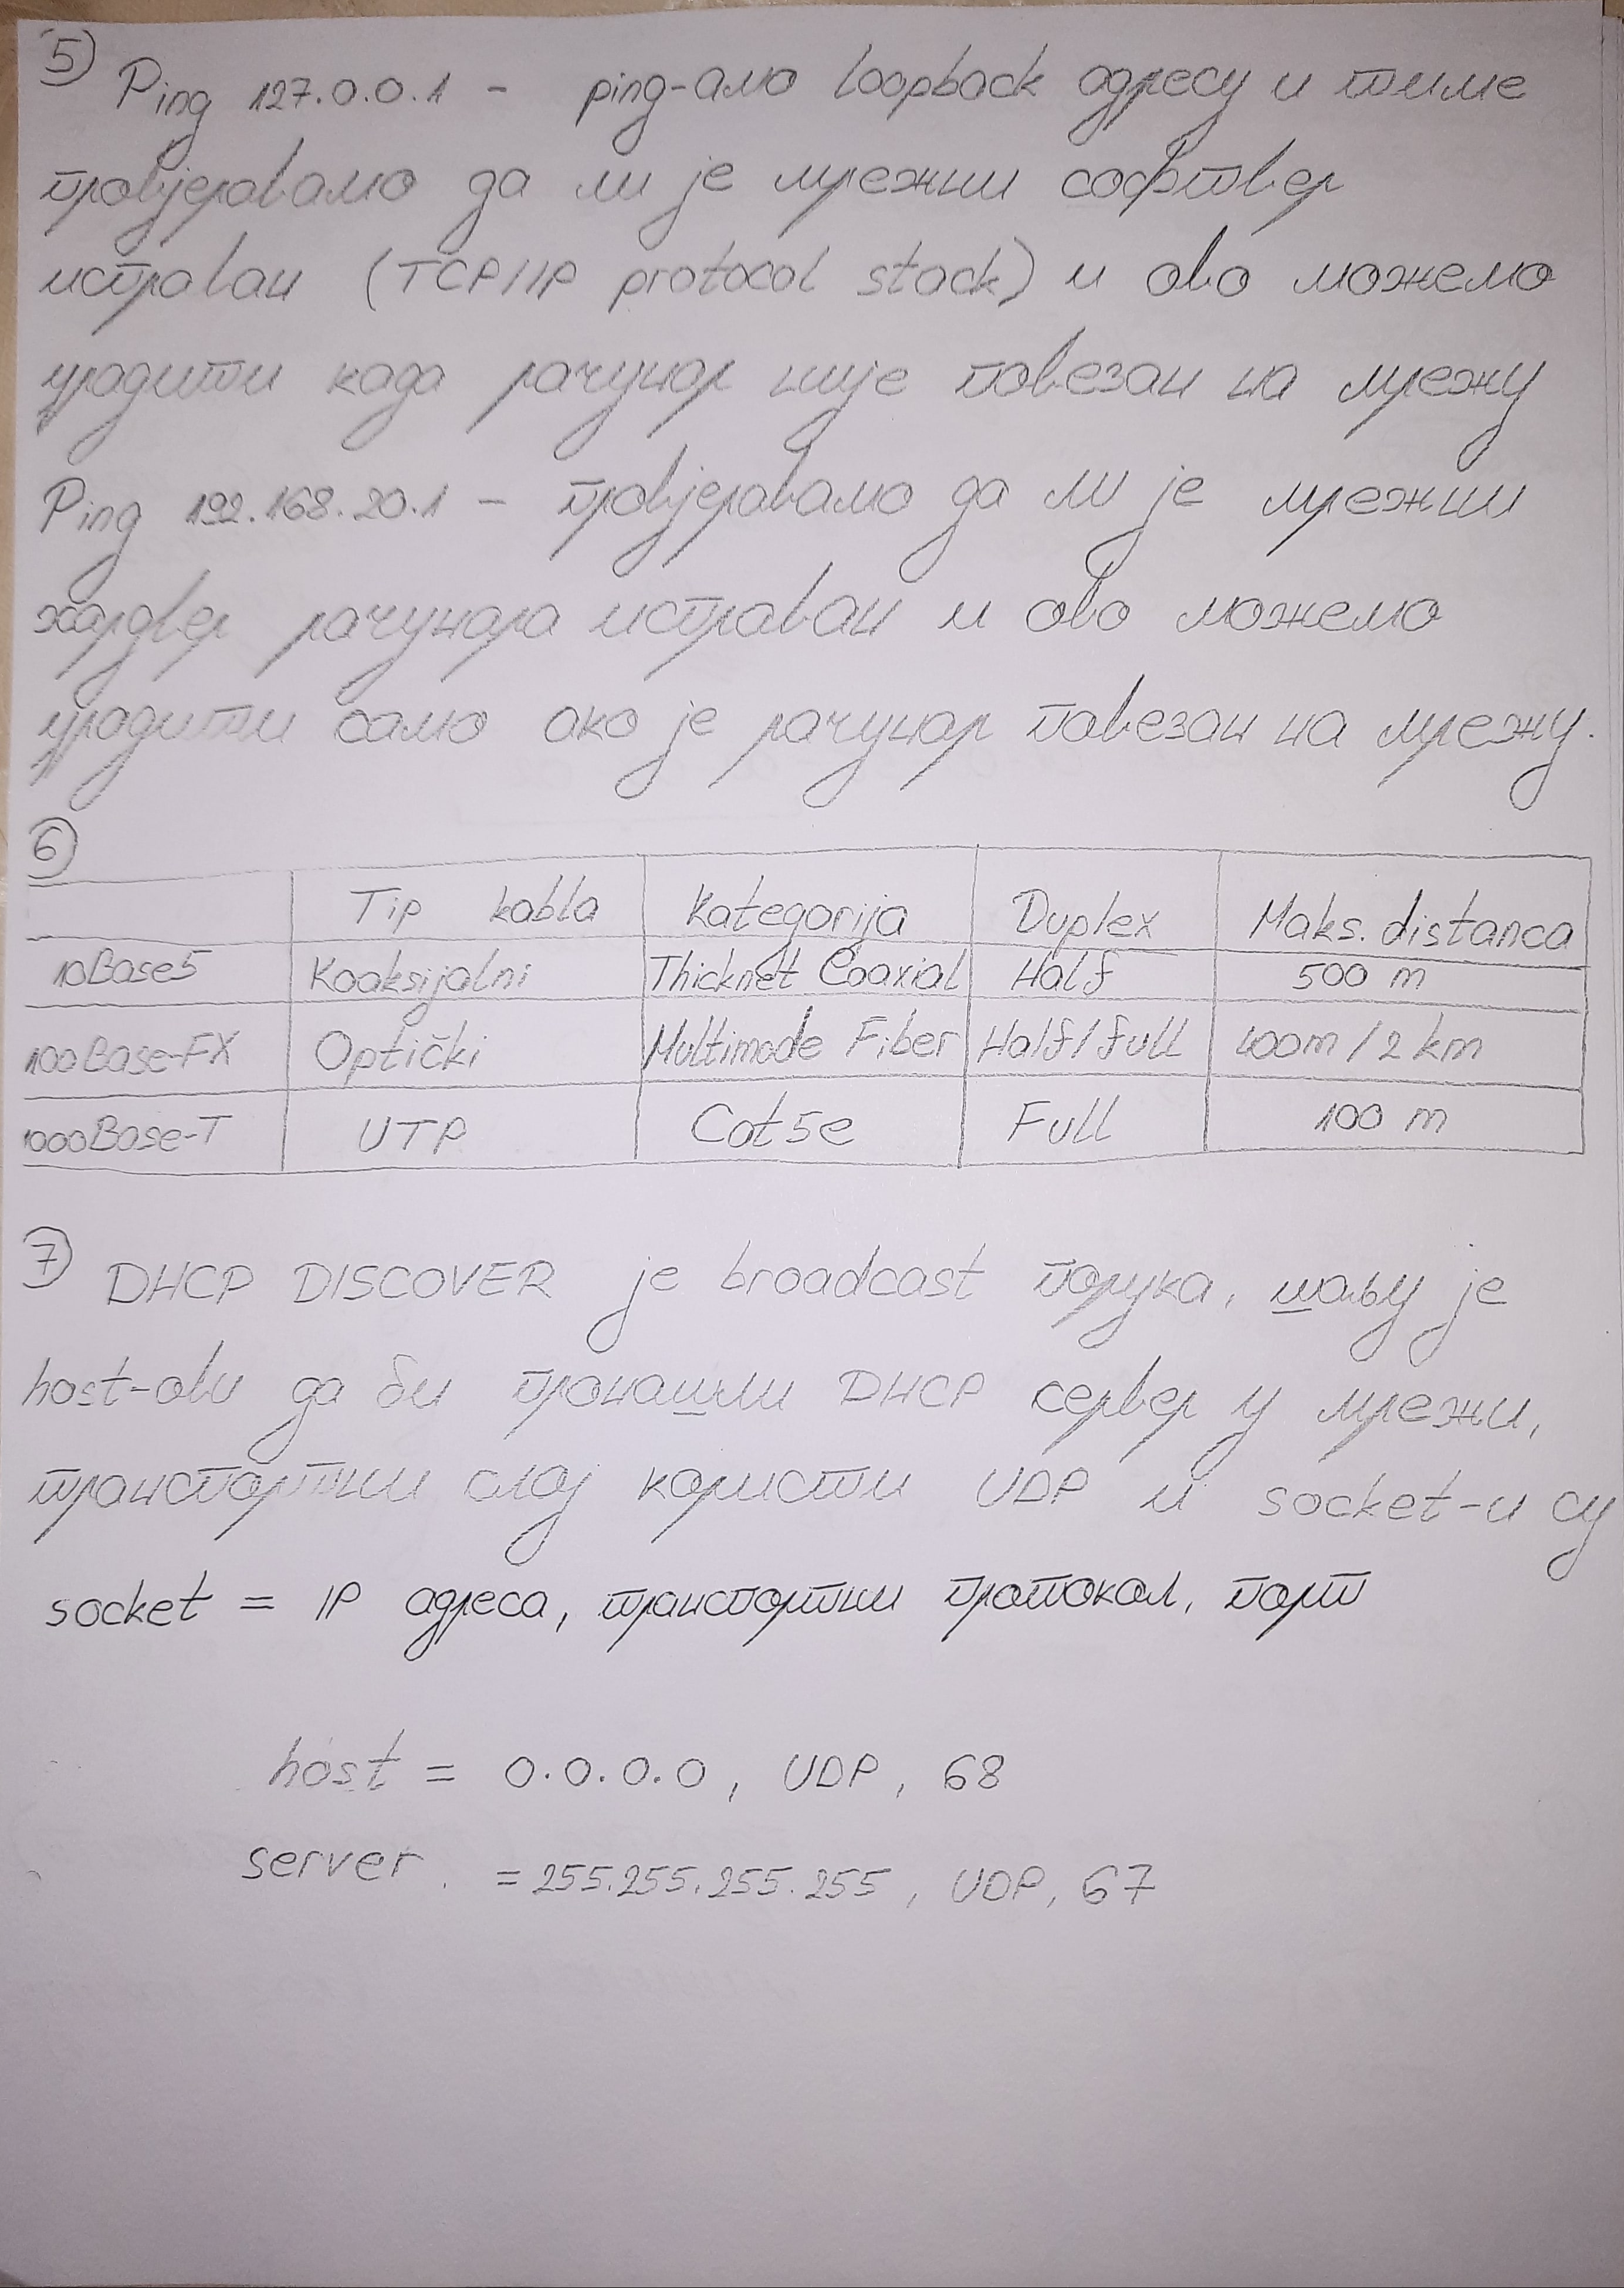 5) Ping 127.0.0.1 - ping-амо loopback адресу и тиме
провјеравамо да ли је мрежни софтвер
исправан (TCP/IP protocol stack) и ово можемо
урадити када рачунар није повезан на мрежу
Ping 192.168.20.1 - провјеравамо да ли је мрежни
хардвер рачунара исправан и ово можемо
урадити само ако је рачунар повезан на мрежу.
6
Tip kabla Kategorija Duplex Maks. distanca
10Base5 Koaksijalni Thicknet Coaxial Half 500 m
100Base-FX Optički Multimode Fiber Half/full 400m/2km
1000Base-T UTP Cat5e Full 100 m
7) DHCP DISCOVER је broadcast порука, шаљу је
host-ови да би пронашли DHCP сервер у мрежи,
транспортни слој користи UDP и socket-и су
socket = IP адреса, транспортни протокол, порт
host = 0.0.0.0, UDP, 68
server = 255.255.255.255, UDP, 67